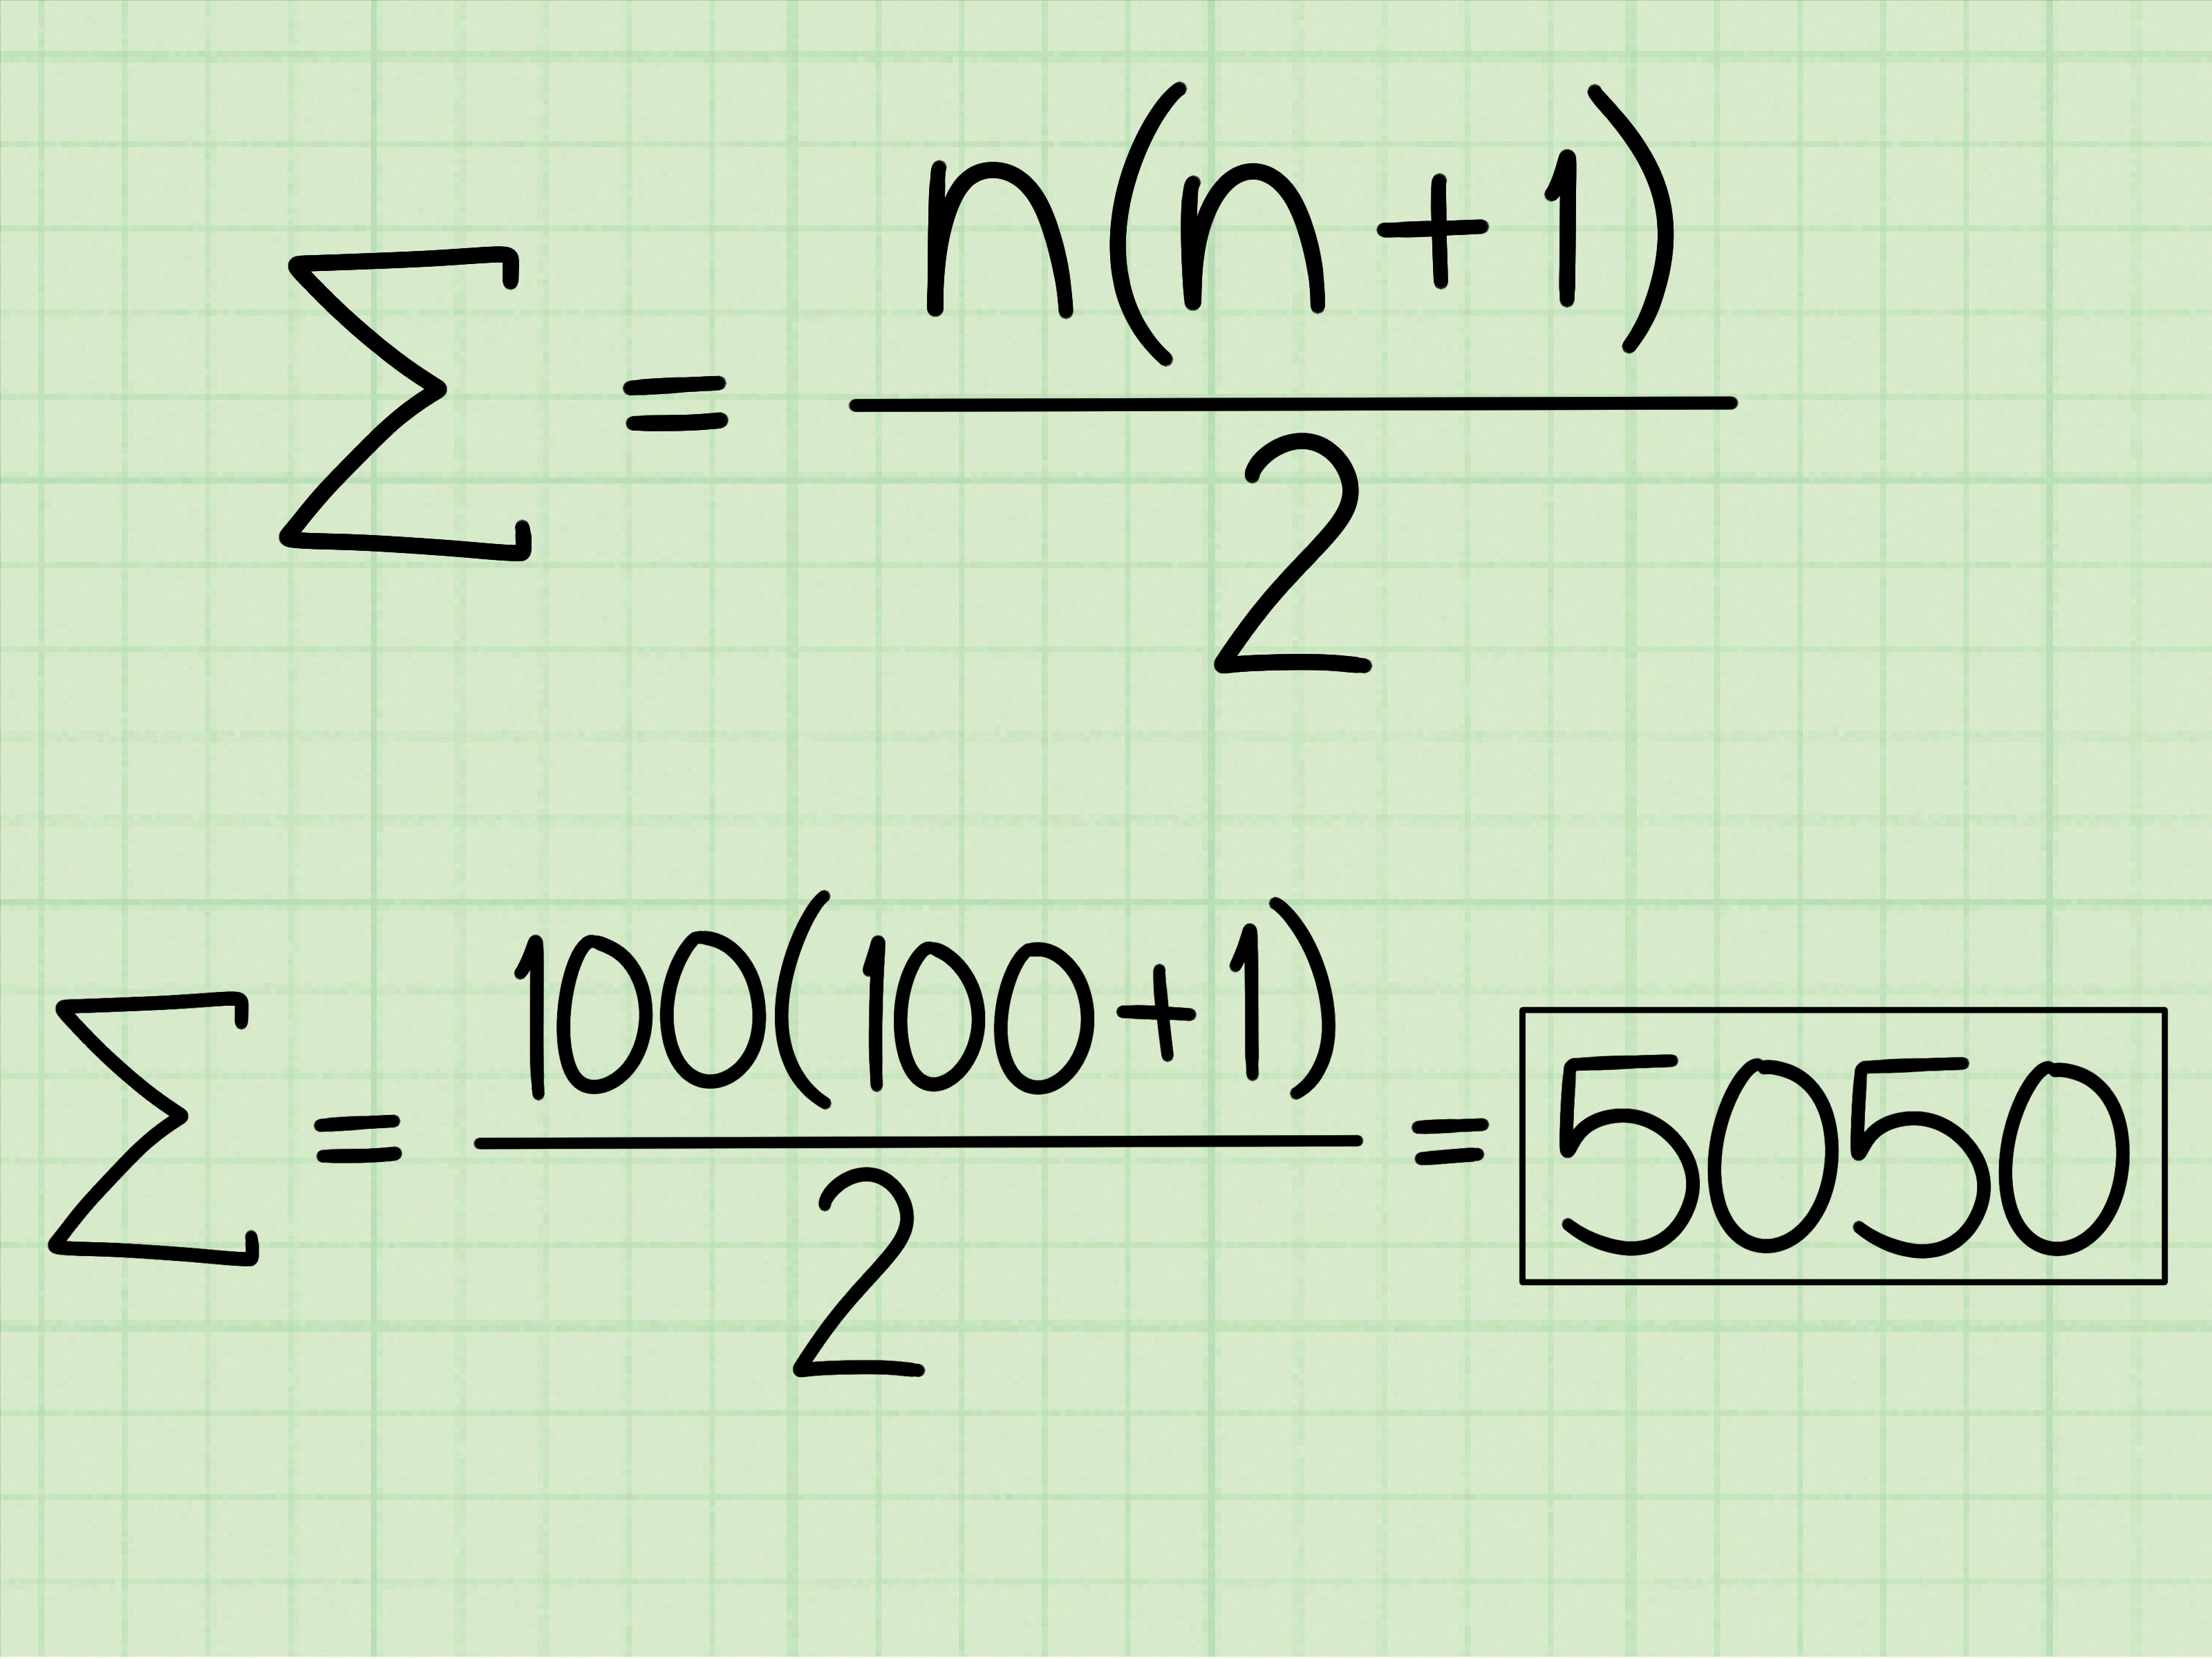 ∑ = n(n+1)/2
∑ = 100(100+1)/2 = 5050